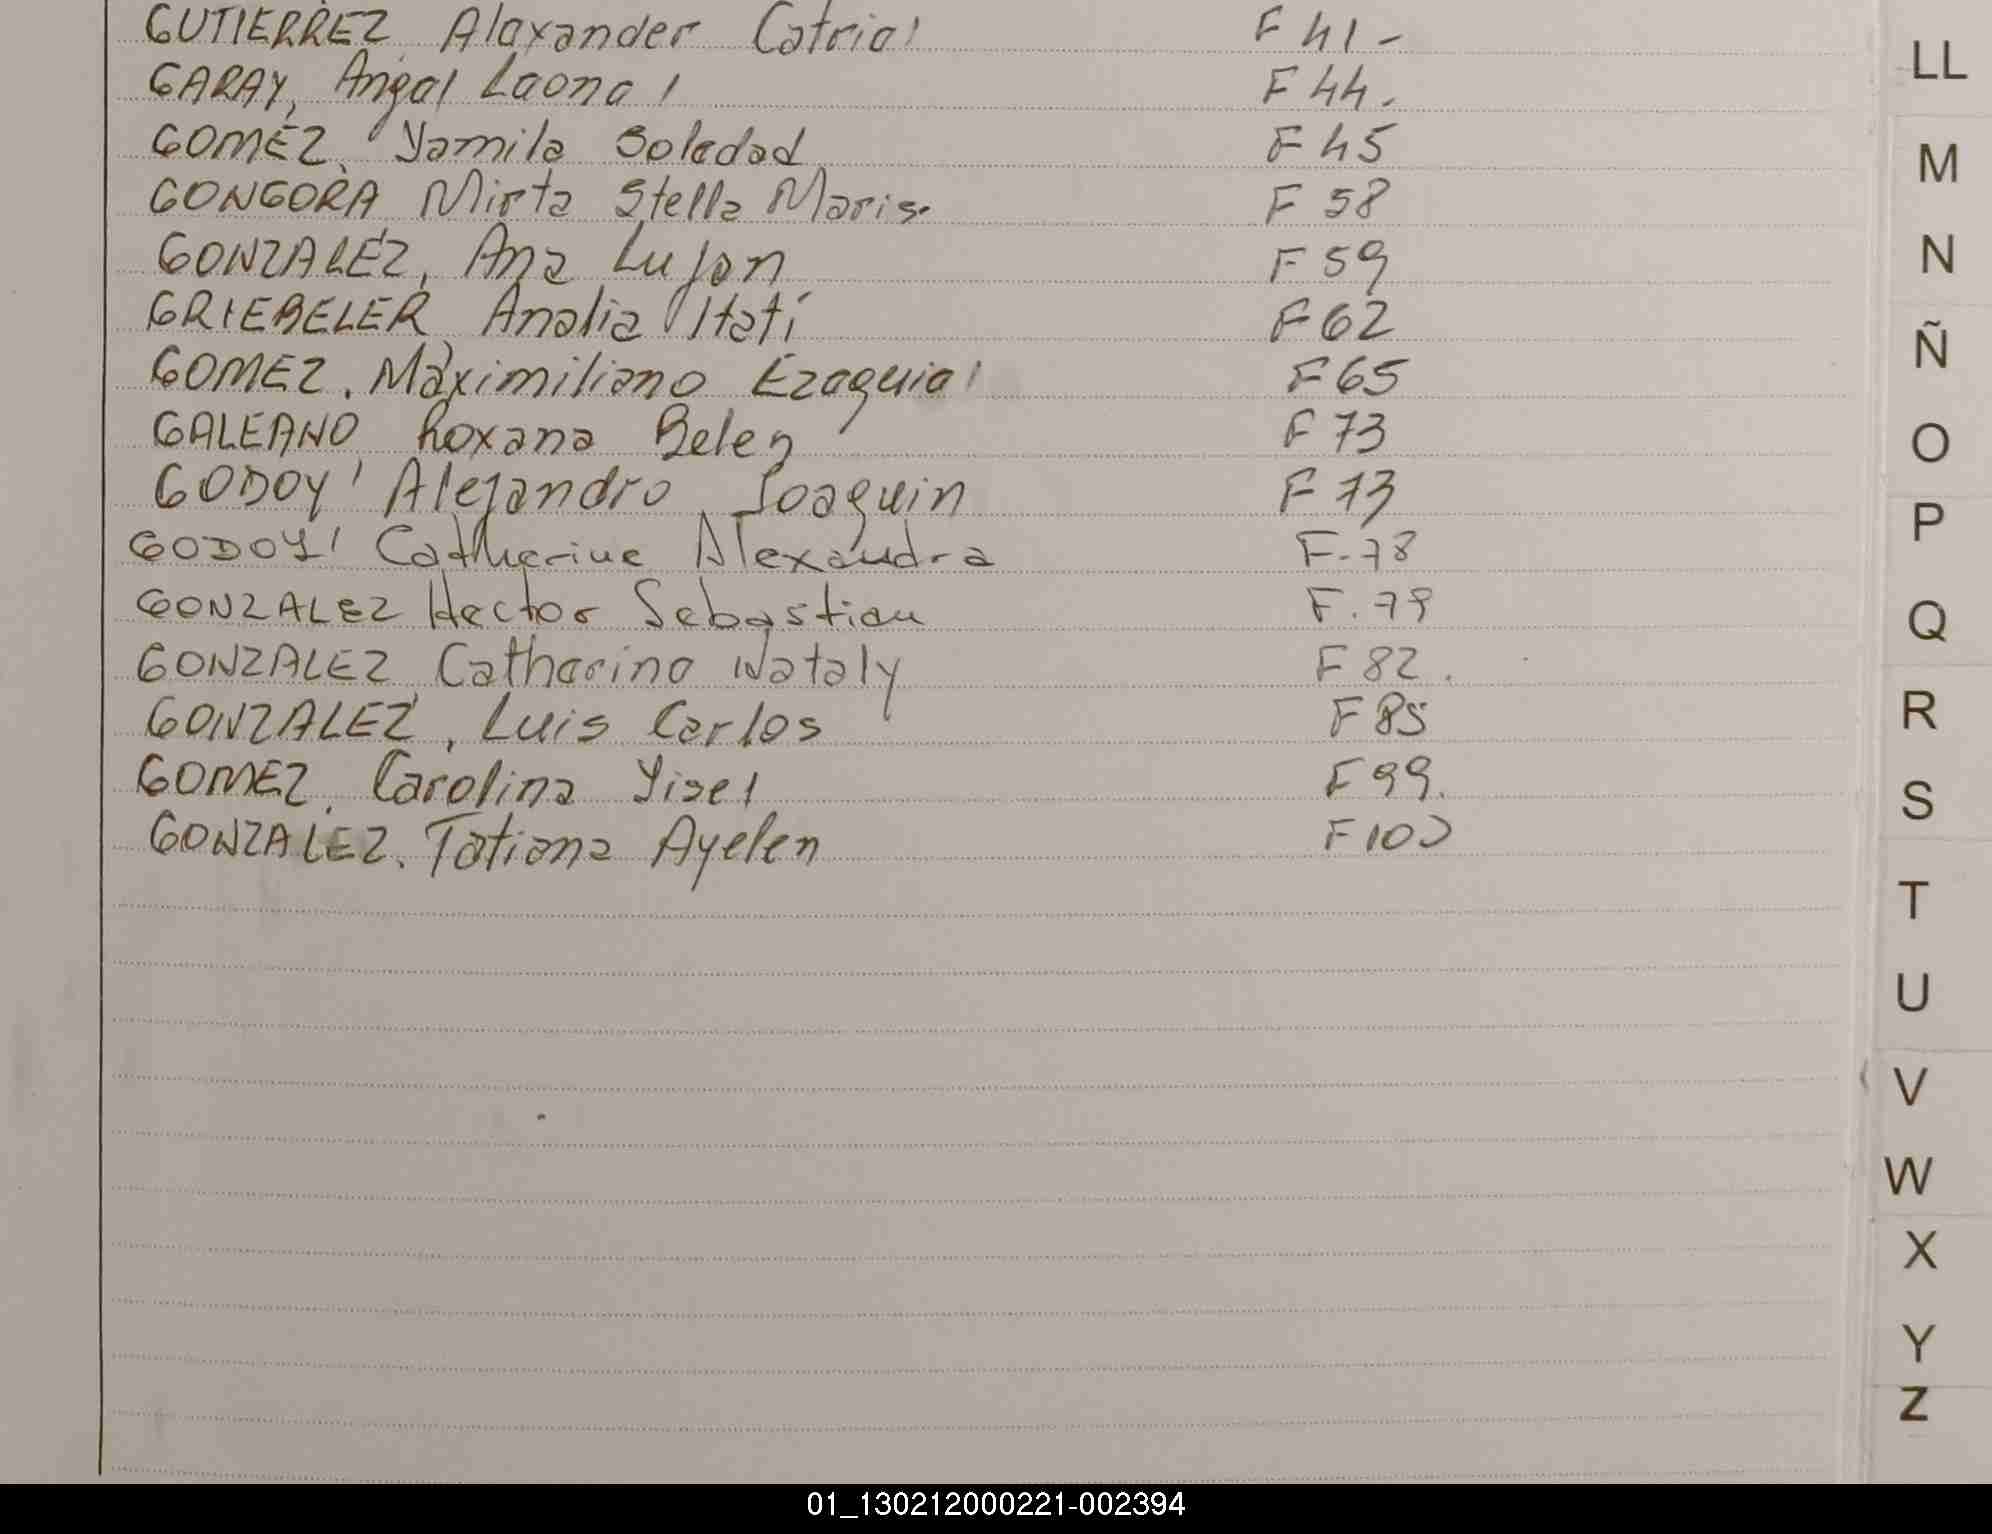 GUTIERREZ, Alexander Catriel F 41 -
GARAY, Angel Leonel F 44.
GOMEZ, Yamila Soledad F 45
GONGORA Mirta Stella Maris. F 58
GONZALEZ, Ana Lujan F 59
GRIEBELER Analia Itatí F 62
GOMEZ, Maximiliano Ezequiel F 65
GALEANO Roxana Belen F 73
GODOY Alejandro Joaquin F 73
GODOY Catherine Alexandra F.78
GONZALEZ Hector Sebastian F.79
GONZALEZ, Catherine Nataly F 82.
GONZALEZ, Luis Carlos F 85
GOMEZ, Carolina Yisel F 99.
GONZALEZ, Tatiana Ayelen F 100
LL
M
N
Ñ
O
P
Q
R
S
T
U
V
W
X
Y
Z
01_130212000221-002394